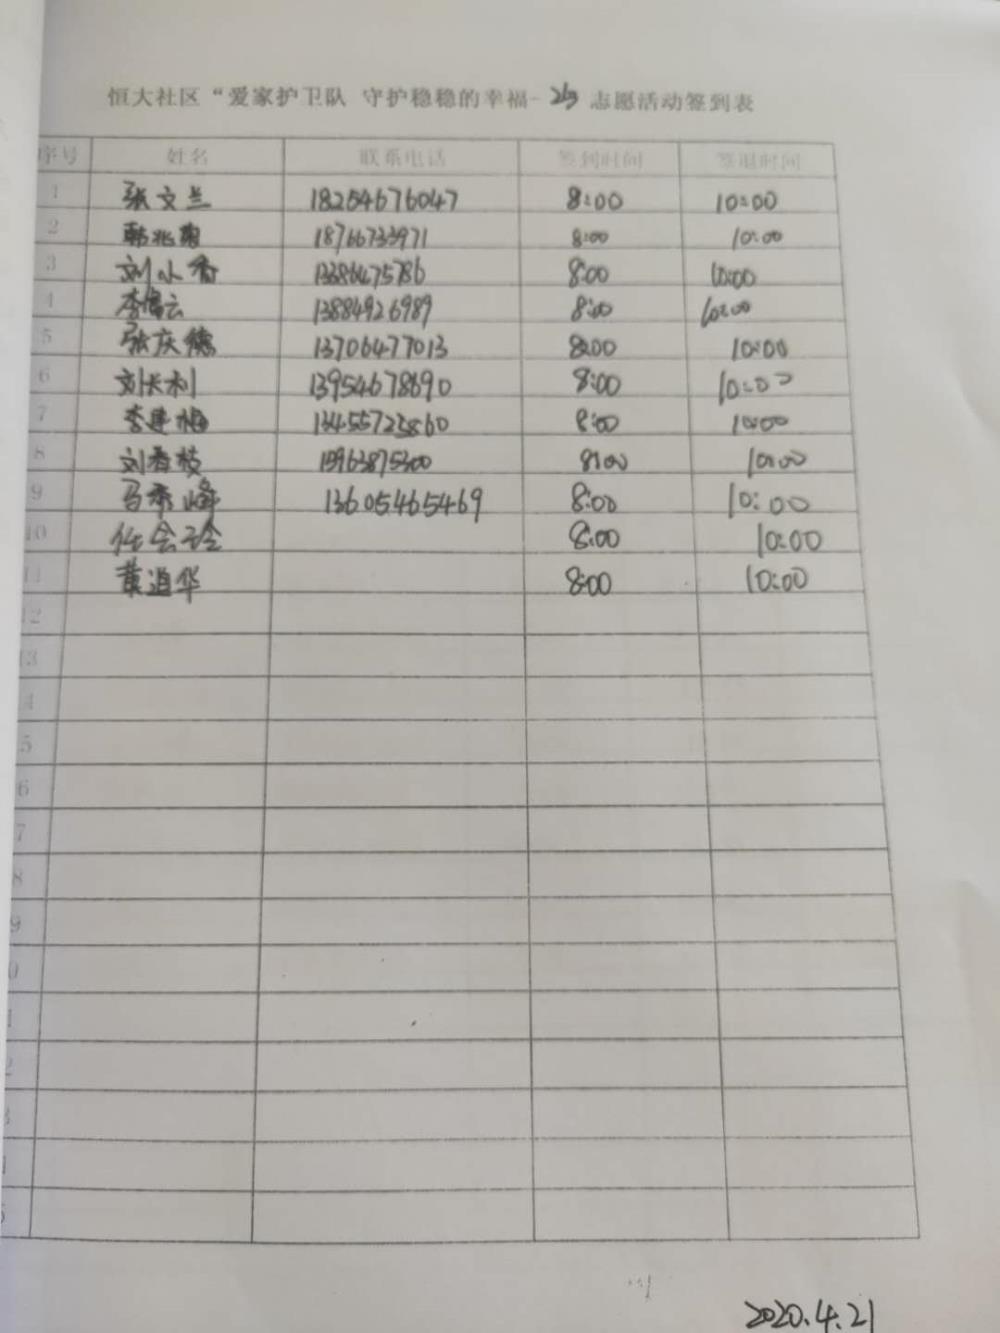 恒大社区“爱家护卫队 守护稳稳的幸福- 志愿活动签到表
序号 姓名 联系电话 签到时间 签退时间
1 张文兰 18254676047 8:00 10:00
2 韩兆 18766733971 8:00 10:00
3 刘小香 8:00 10:00
4 李 云 13884926989 8:00 10:00
5 张庆德 13706477013 8:00 10:00
6 刘长利 13954678690 8:00 10:00
7 李建梅 8:00 10:00
8 刘春枝 15963875300 8:00 10:00
9 马秀峰 13605465469 8:00 10:00
10 任会玲 8:00 10:00
11 黄道华 8:00 10:00
12
13
4
5
6
7
8
9
0
1
2
3
5
2020.4.21